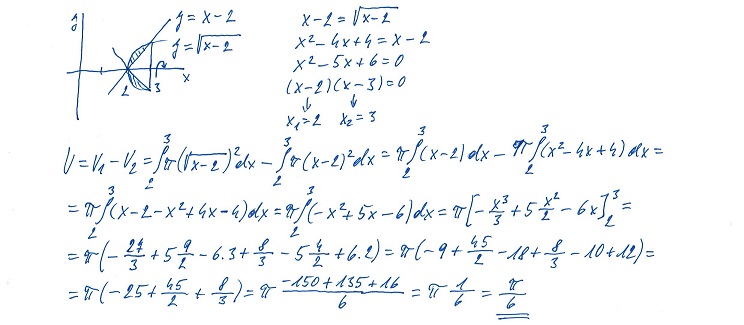 y
y = x - 2
y = √(x-2)
2 3 x
x - 2 = √(x-2)
x² - 4x + 4 = x - 2
x² - 5x + 6 = 0
(x-2)(x-3) = 0
↓ ↓
x₁ = 2 x₂ = 3
V = V₁ - V₂ = ∫₂³ π(√(x-2))² dx - ∫₂³ π(x-2)² dx = π∫₂³ (x-2) dx - π∫₂³ (x² - 4x + 4) dx =
= π∫₂³ (x - 2 - x² + 4x - 4) dx = π∫₂³ (-x² + 5x - 6) dx = π[-x³/3 + 5 x²/2 - 6x]₂³ =
= π(-27/3 + 5 9/2 - 6.3 + 8/3 - 5 4/2 + 6.2) = π(-9 + 45/2 - 18 + 8/3 - 10 + 12) =
= π(-25 + 45/2 + 8/3) = π (-150 + 135 + 16)/6 = π 1/6 = π/6